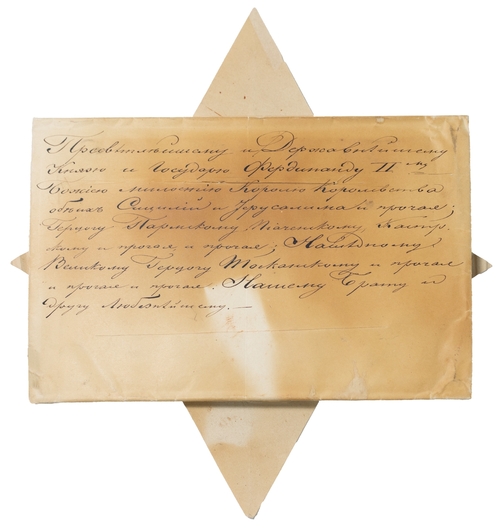 Пресвѣтлѣйшему и Державнѣйшему
Князю и Государю Фердинанду II му
Божіею милостію Королю Королевства
обѣихъ Сицилій и Іерусалима и прочая;
Герцогу Пармскому Піаченскому, Кастр-
кому и прочая, и прочая; Наслѣдному
Великому Герцогу Тосканскому и прочая
и прочая и прочая. Нашему Брату и
другу Любезнѣйшему.—